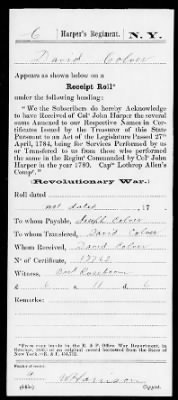 C | Harper's Regiment. | N. Y.
David Colver
Appears as shown below on a
Receipt Roll*
under the following heading:
"We the Subscribers do hereby Acknowledge
to have Received of Colº John Harper the several
sums Annexed to our Respective Names in Cer-
tificates Issued by the Treasurer of this State
Pursuant to an Act of the Legislature Passed 27th
April, 1784, being for Services Performed by us
or Transfered to us from those who performed
the same in the Regimt Commanded by Colº John
Harper in the year 1780. Capn Lothrop Allen's
Compy."
(Revolutionary War.)
Roll dated
not dated, 17
To whom Payable, Joseph Colver
To whom Transfered, David Colver
Whom Received, David Colver
Nº of Certificate,
Witness,
Remarks:
*From copy made in the R. & P. Office War Department, in
State of
New York.—R. & P.
W Harrison
Copyist.